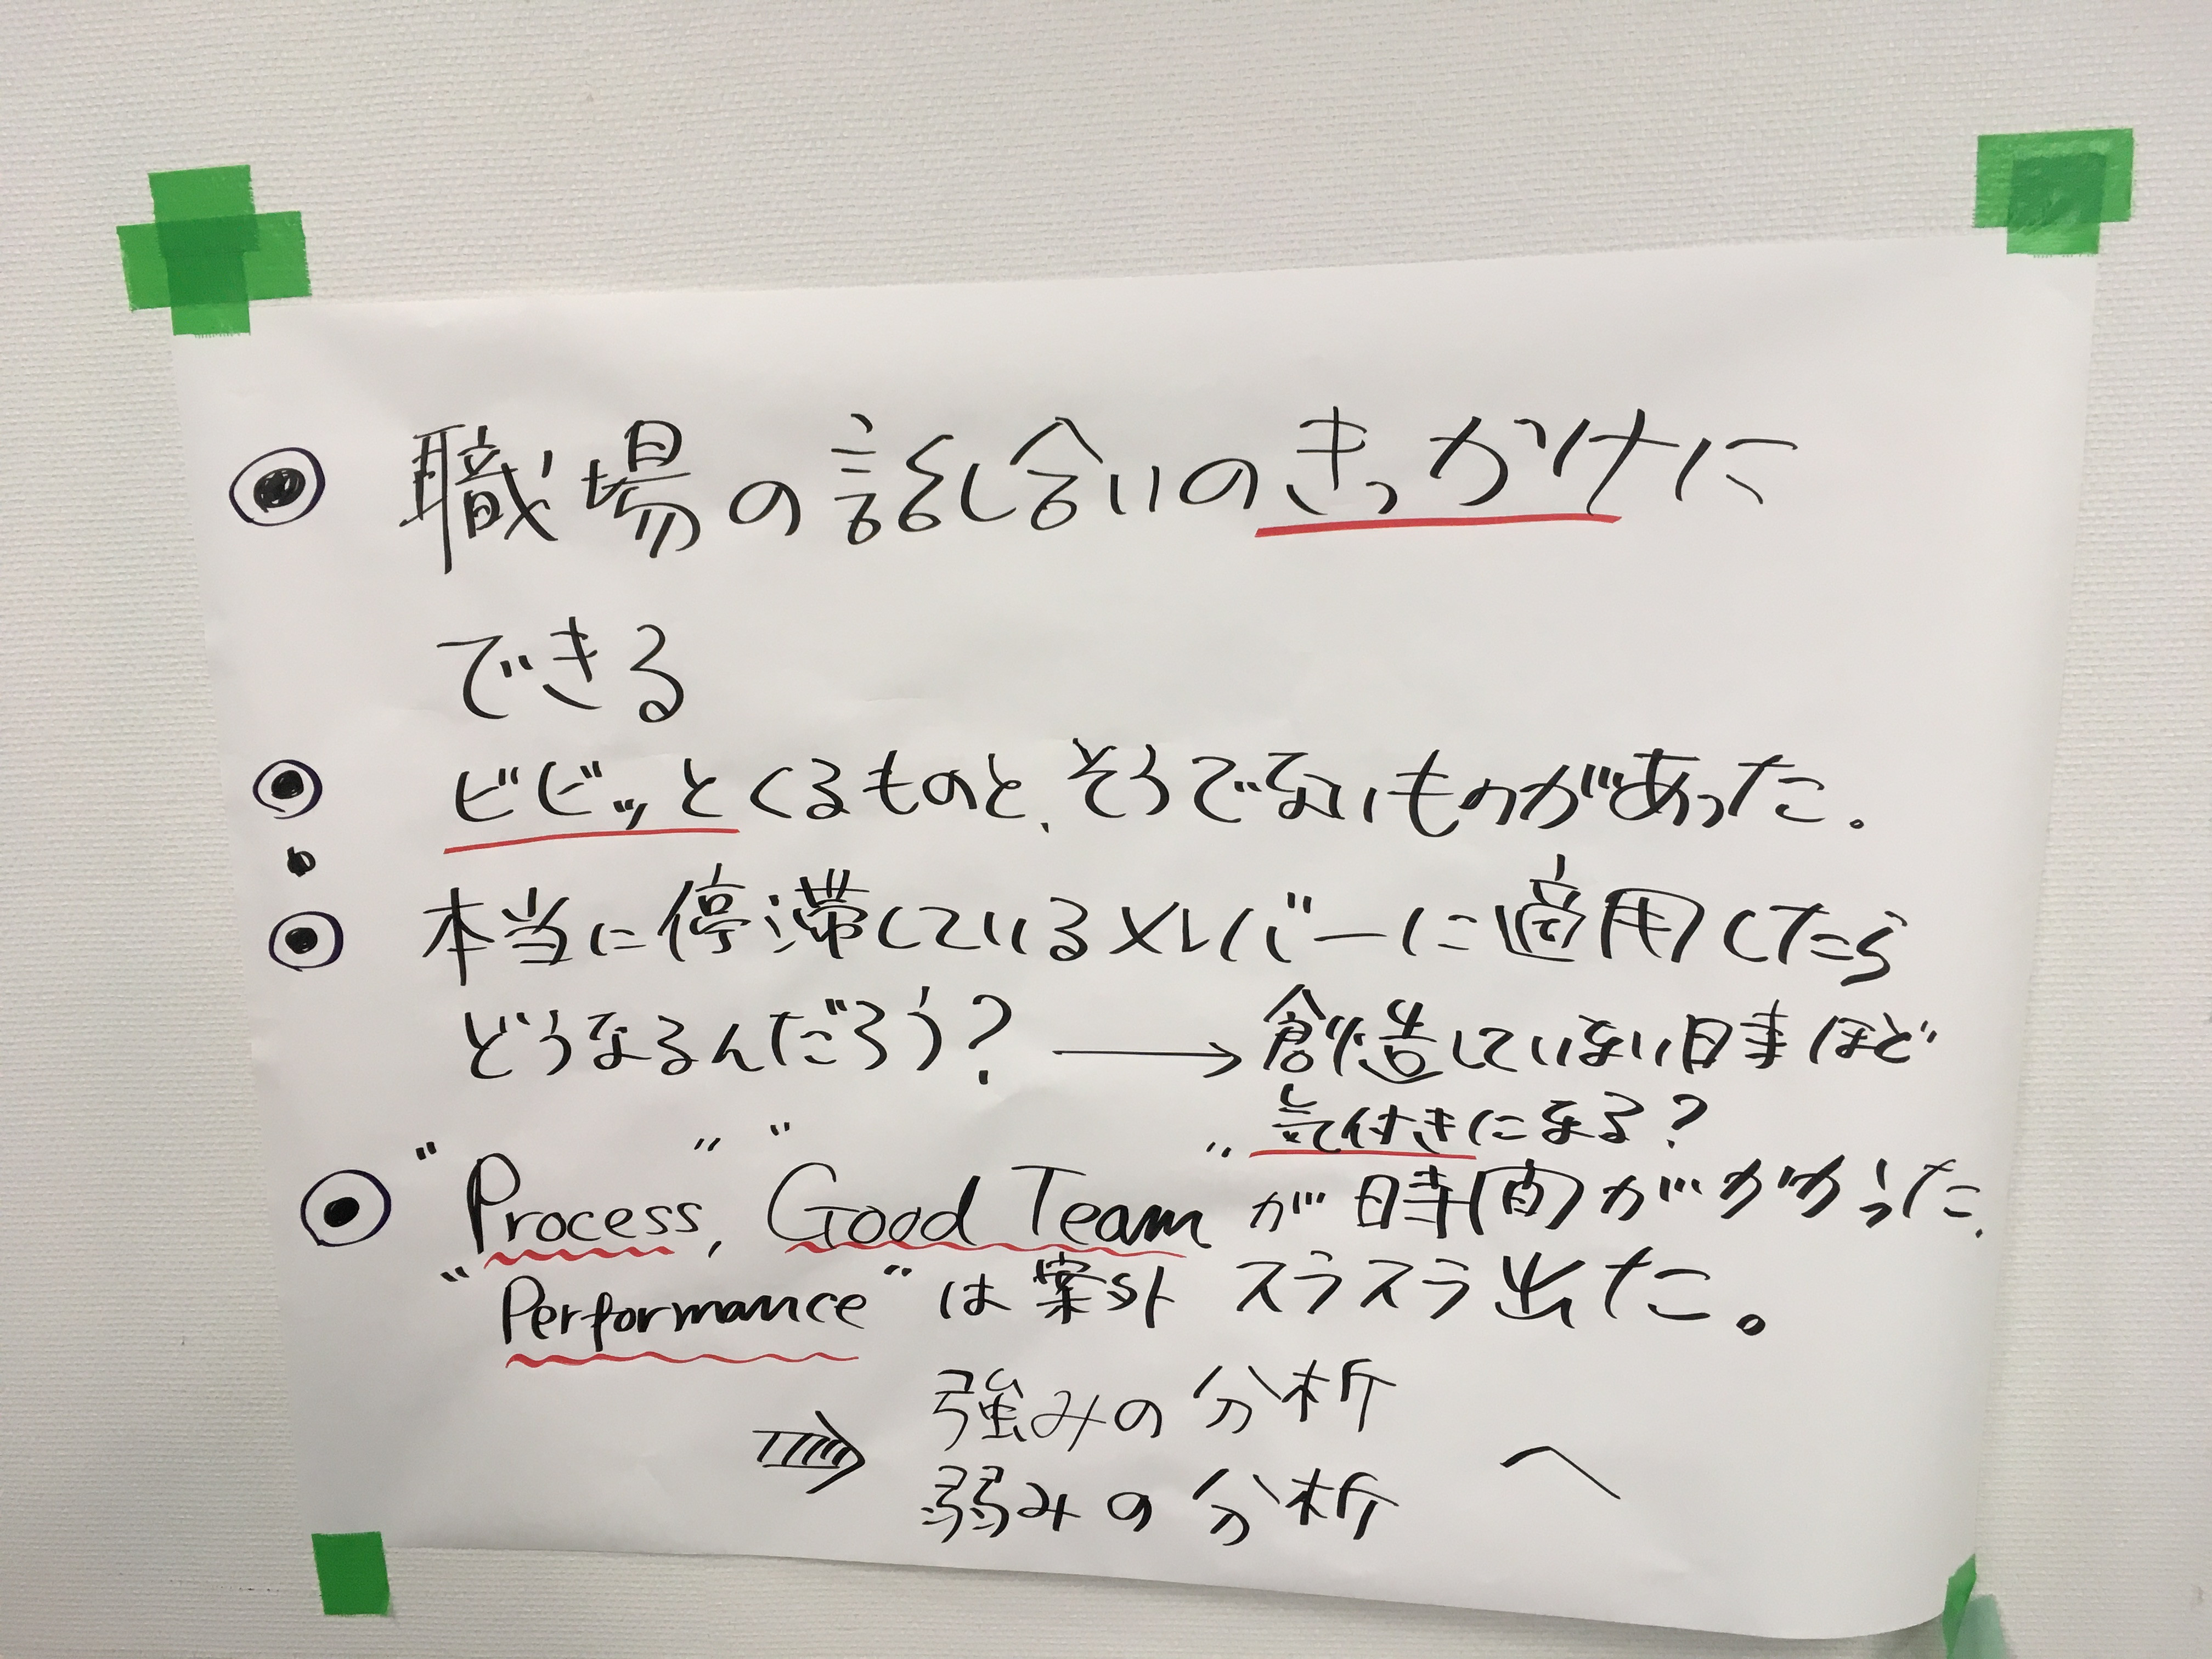 ◉ 職場の話し合いのきっかけに
できる
◉ ビビッとくるものと、そうでないものがあった。
◉ 本当に停滞しているメンバーに適用したら
どうなるんだろう? → 創造していない時ほど
気付きになる?
◉ "Process", "Good Team" が時間がかかった、
"Performance" は案外 スラスラ出た。
⇒ 強みの分析
弱みの分析 へ